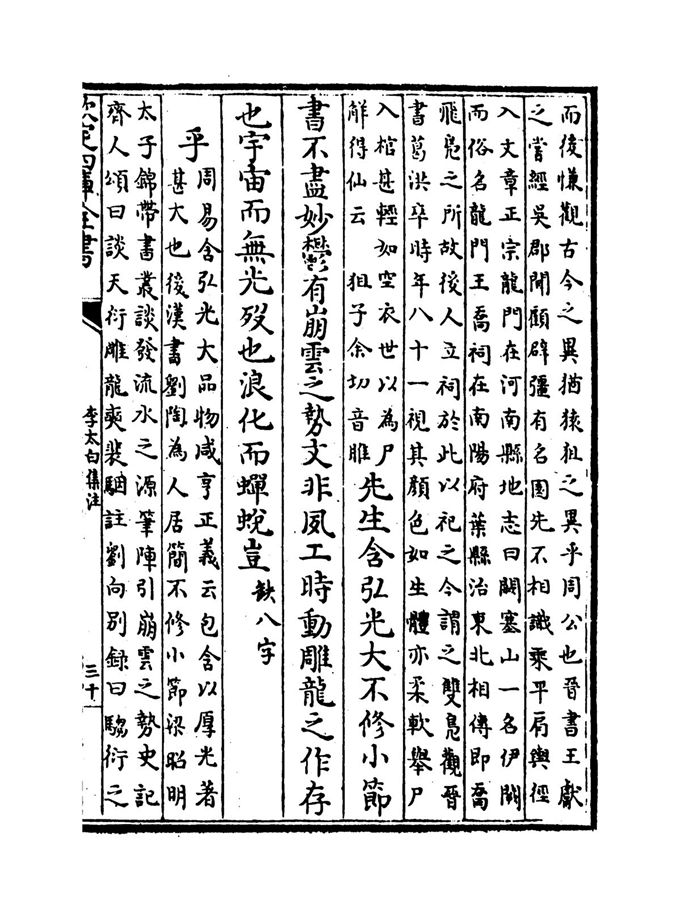 而後慊觀古今之異猶猿狙之異乎周公也晉書王獻
之嘗經吳郡聞顧辟彊有名園先不相識乘平肩輿徑
入文章正宗龍門在河南縣地志曰闕塞山一名伊闕
而俗名龍門王喬祠在南陽府葉縣治東北相傳即喬
飛鳬之所故後人立祠於此以祀之今謂之雙鳬觀晉
書葛洪卒時年八十一視其顔色如生體亦柔軟舉尸
入棺甚輕如空衣世以為尸
觧得仙云　狙子余切音雎
先生含弘光大不修小節
書不盡妙鬱有崩雲之勢文非夙工時動雕龍之作存
也宇宙而無光歿也浪化而蟬蛻豈缺八字
乎
周易含弘光大品物咸亨正義云包含以厚光著
甚大也後漢書劉陶為人居簡不修小節梁昭明
太子錦帶書叢談發流水之源筆陣引崩雲之勢史記
齊人頌曰談天衍雕龍奭裴駰註劉向别録曰騶衍之
欽定四庫全書
李太白集注
三十